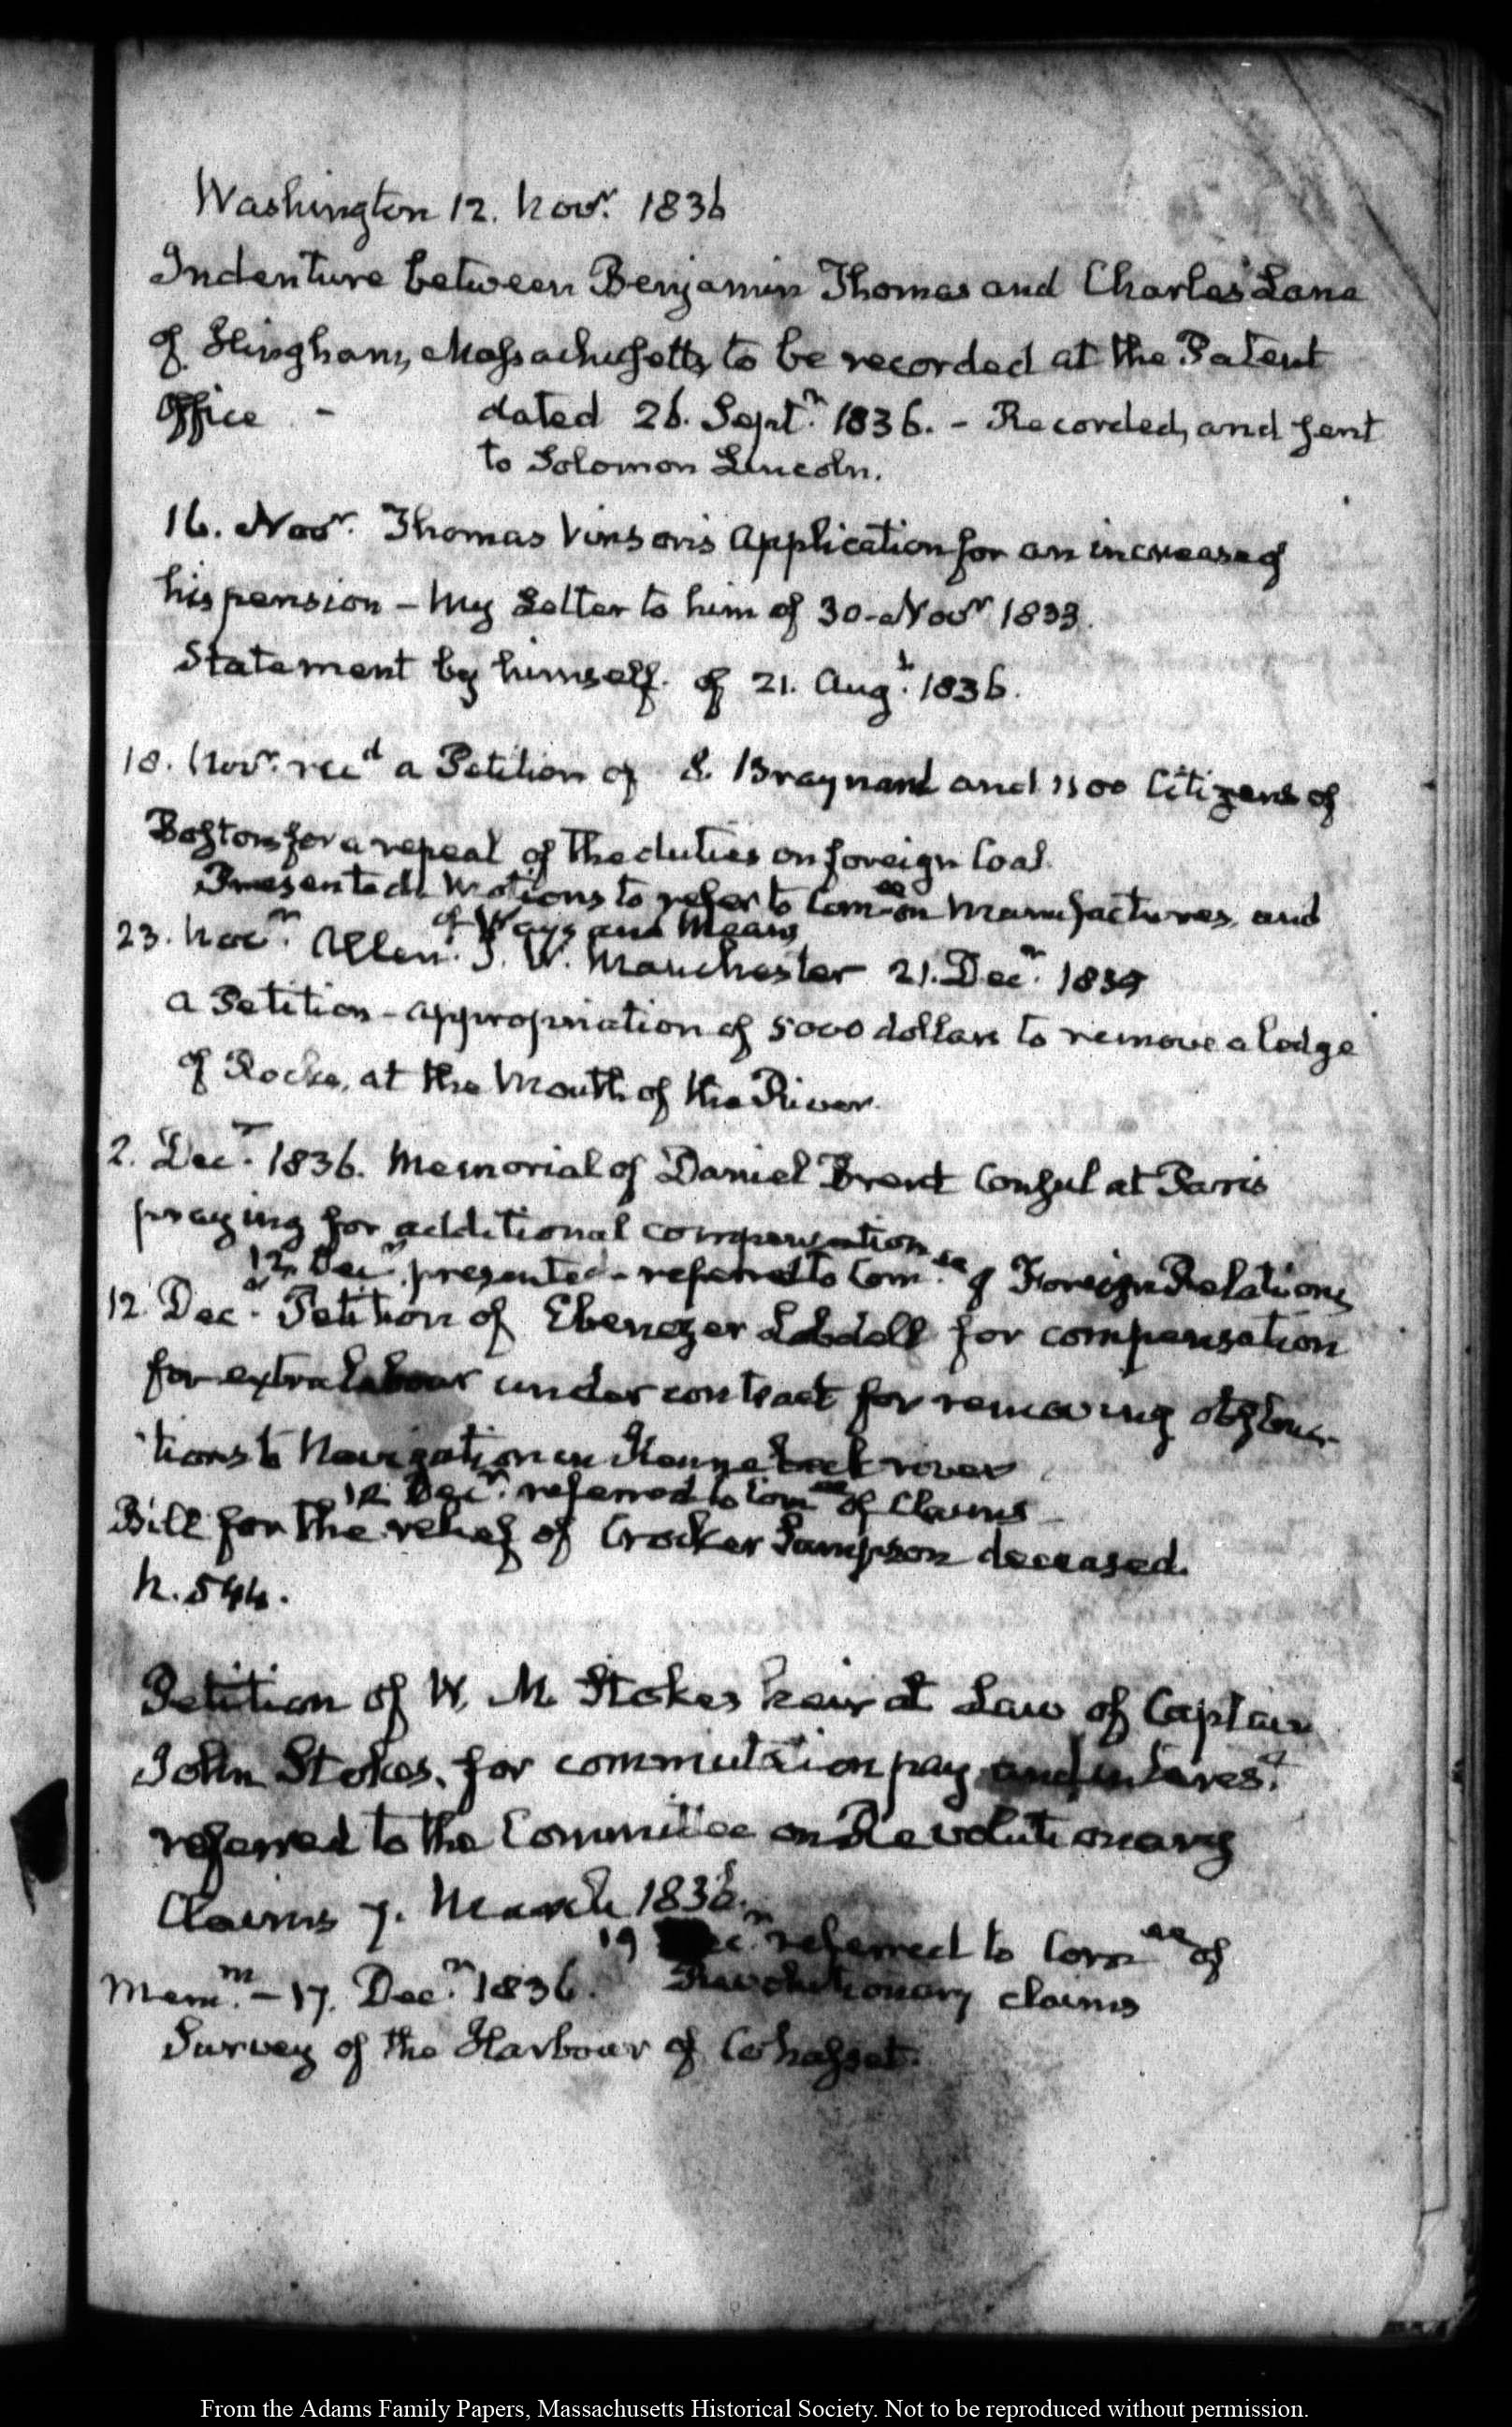 Washington 12. Novr. 1836
Indenture between Benjamin Thomas and Charles Lane
of Hingham, Massachusetts, to be recorded at the Patent
Office - dated 26. Septr. 1836. - Recorded, and sent
to Solomon Lincoln.
16. Novr. Thomas Vinson's application for an increase of
his pension - My Letter to him of 30. Novr 1833.
Statement by himself. of 21. Augt. 1836.
18. Novr. recd a Petition of S. Braynard and 1500 Citizens of
Boston for a repeal of the duties on foreign Coal.
Presented. Motions to refer to Comee on Manufactures, and
of Ways and Means
23. Novr. Allen. J. W. Manchester 21. Decr. 1835
a Petition - appropriation of 5000 dollars to remove a ledge
of Rocks, at the Mouth of the River.
2. Decr. 1836. Memorial of Daniel Brent Consul at Paris
praying for additional compensation
12. Decr. presented - referred to Comee of Foreign Relations
12. Decr. Petition of Ebenezer Lobdell for compensation
for extra labour under contract for removing obstruc-
tions to Navigation in Kennebeck river
12. Decr. referred to Comee of Claims -
Bill for the relief of Crocker Sampson deceased.
h. 544.
Petition of W. M. Stokes heir at Law of Captain
John Stokes, for commutation pay and interest
referred to the Committee on Revolutionary
Claims 7. March 1836.
19 Decr referred to Comee of
Memm. - 17. Decr. 1836. Revolutionary claims
Survey of the Harbour of Cohasset.
From the Adams Family Papers, Massachusetts Historical Society. Not to be reproduced without permission.